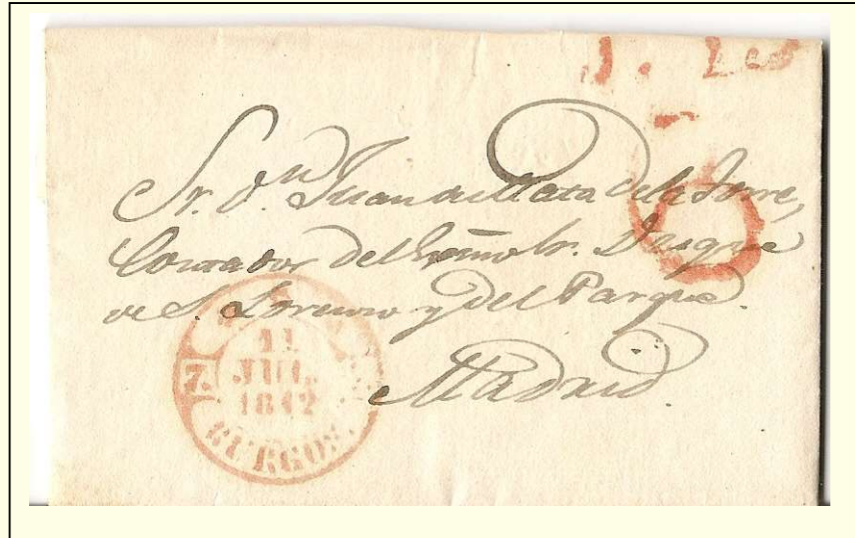 Sr. Dn. Juan de Mata de la Torre,
Contador del Exmo Sr. Duque
de S. Lorenzo y del Parque.
Madrid.
11
JUL.
1842
BURGOS.